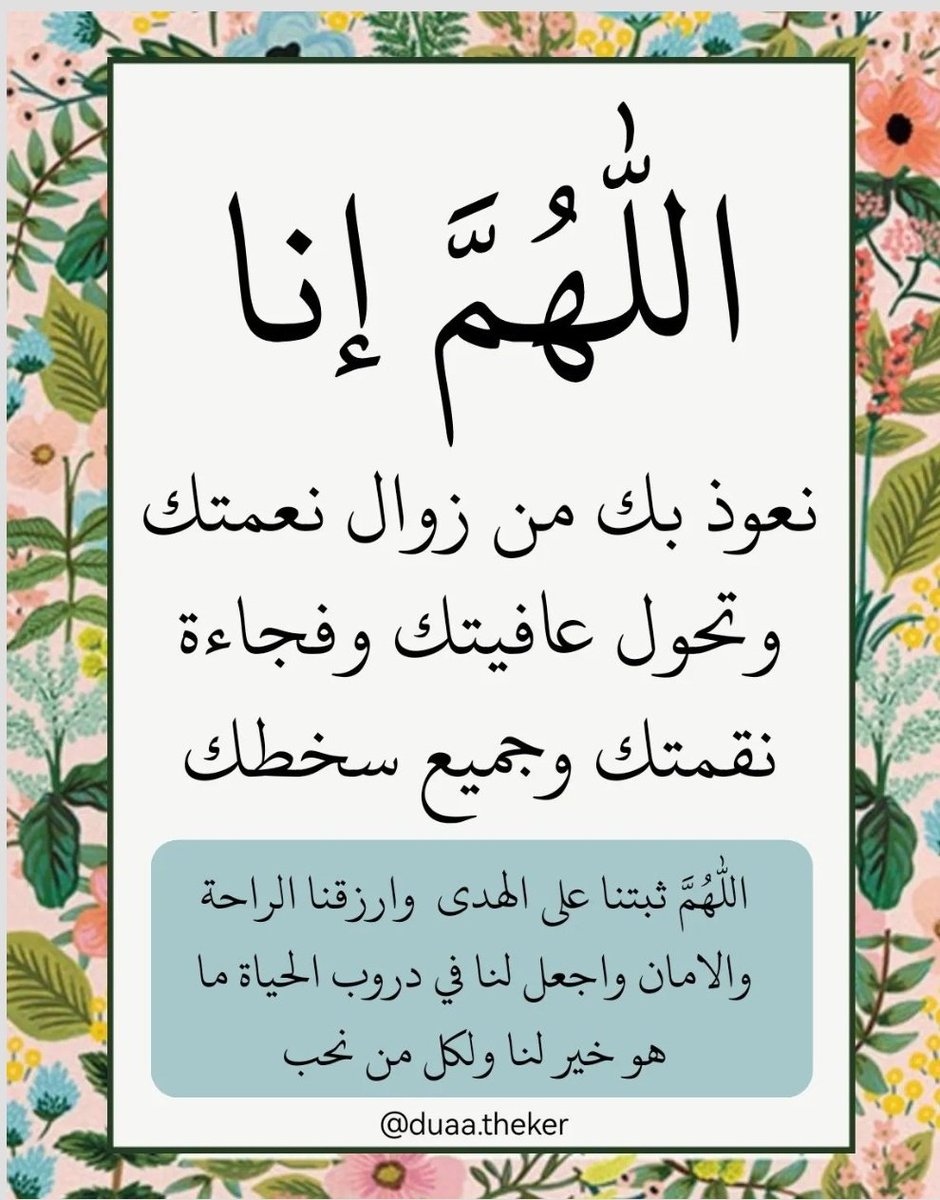 اللّٰهُمَّ إنا
نعوذ بك من زوال نعمتك
وتحول عافيتك وفجاءة
نقمتك وجميع سخطك
اللّٰهُمَّ ثبتنا على الهدى وارزقنا الراحة
والامان واجعل لنا في دروب الحياة ما
هو خير لنا ولكل من نحب
@duaa.theker